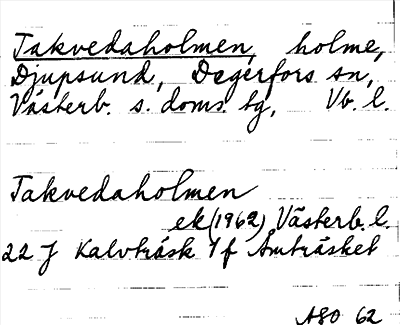 Takvedaholmen, holme,
Djupsund, Degerfors sn,
Västerb. s. doms. tg, Vb. l.
Takvedaholmen
ek (1962) Västerb. l.
22 J Kalvträsk 1 f Amträsket
ASO 62